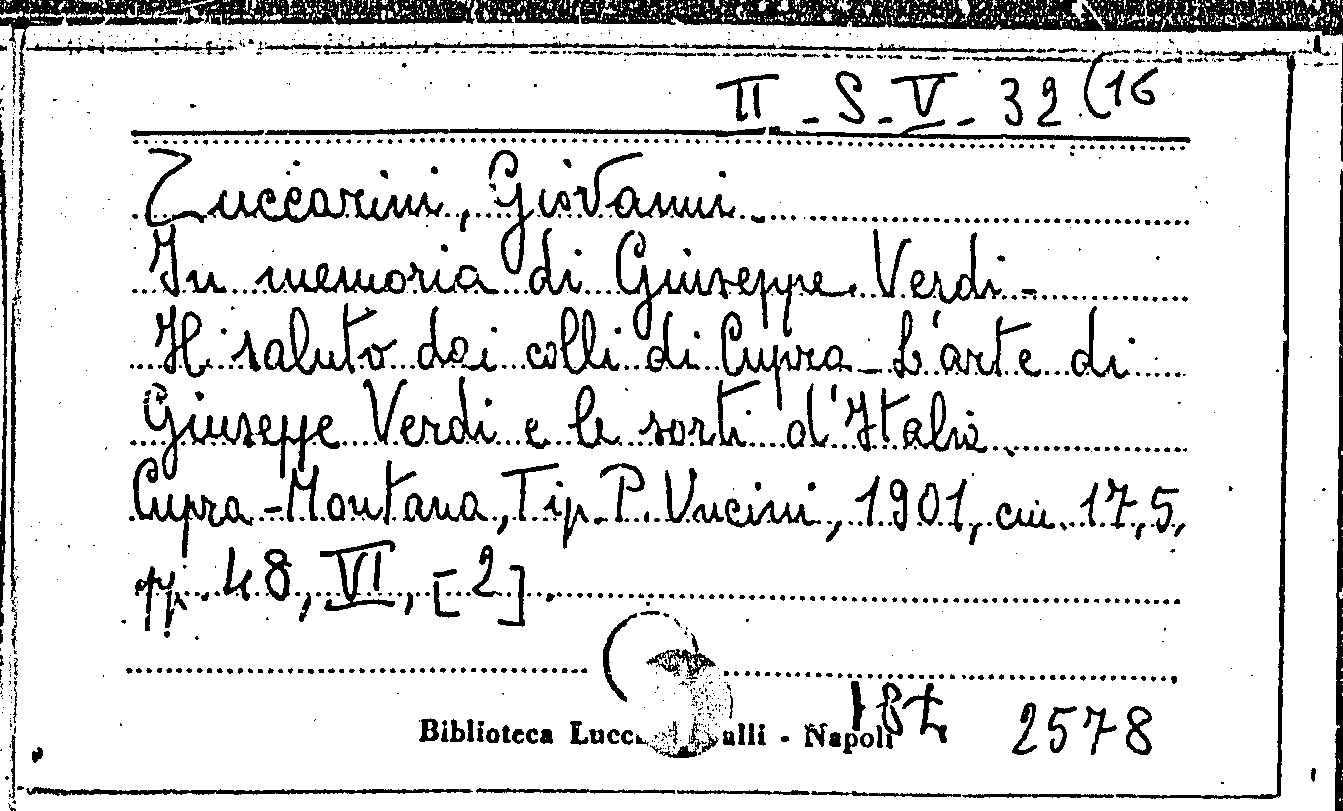 II - S - V - 32 (16
Zuccarini, Giovanni -
In memoria di Giuseppe Verdi -
Il saluto dei colli di Cupra - L'arte di
Giuseppe Verdi e le sorti d'Italia.
Cupra-Montana, Tip. P. Uncini, 1901, cm. 17,5,
pp. 48, VI, [2].
2578
Biblioteca Napoli